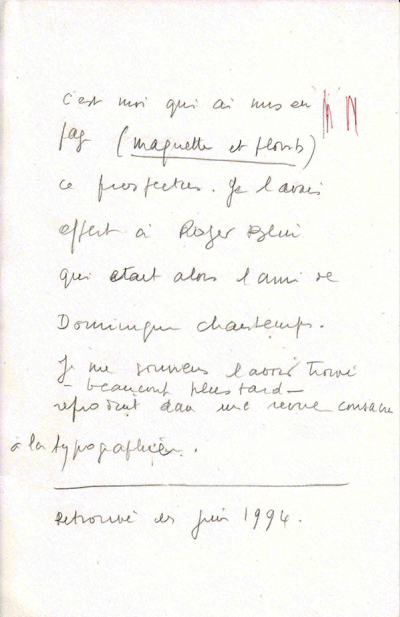 c'est moi qui ai mis en
pag (maquette et plomb)
ce prospectus. Je l'avais
offert à Roger Blin
qui était alors l'ami de
Dominique chautemps.
Je me souviens l'avoir trouvé
– beaucoup plus tard –
reproduit dan une revue consacrée
à la typographie.
Retrouvé en juin 1994.